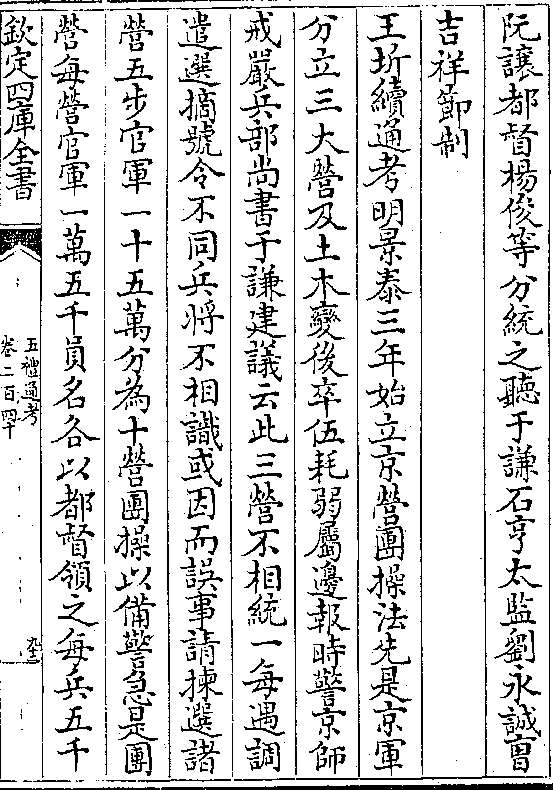 阮譲都督楊俊等分統之聽于謙石亨太監劉永誠曹
吉祥節制
王圻續通考明景泰三年始立京營團操法先是京軍
分立三大營及土木變後卒伍耗弱屬邊報時警京師
戒嚴兵部尚書于謙建議云此三營不相統一每遇調
遣選摘號令不同兵將不相識或因而誤事請揀選諸
營五步官軍一十五萬分為十營團操以備警急是團
營每營官軍一萬五千員名各以都督領之每兵五千
欽定四庫全書
五禮通考
卷二百四十